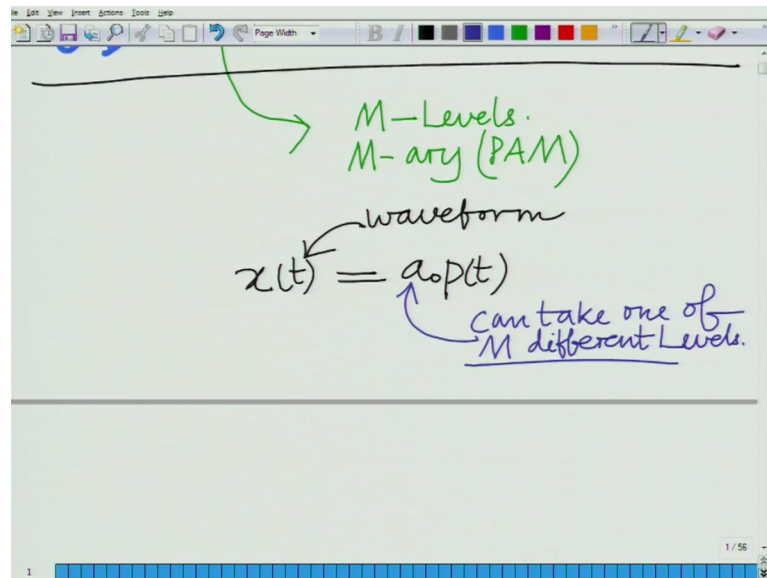 File Edit View Insert Actions Tools Help
Page Width
M-Levels.
M-ary (PAM)
waveform
x(t) = a₀p(t)
can take one of
M different Levels.
1 / 56
1